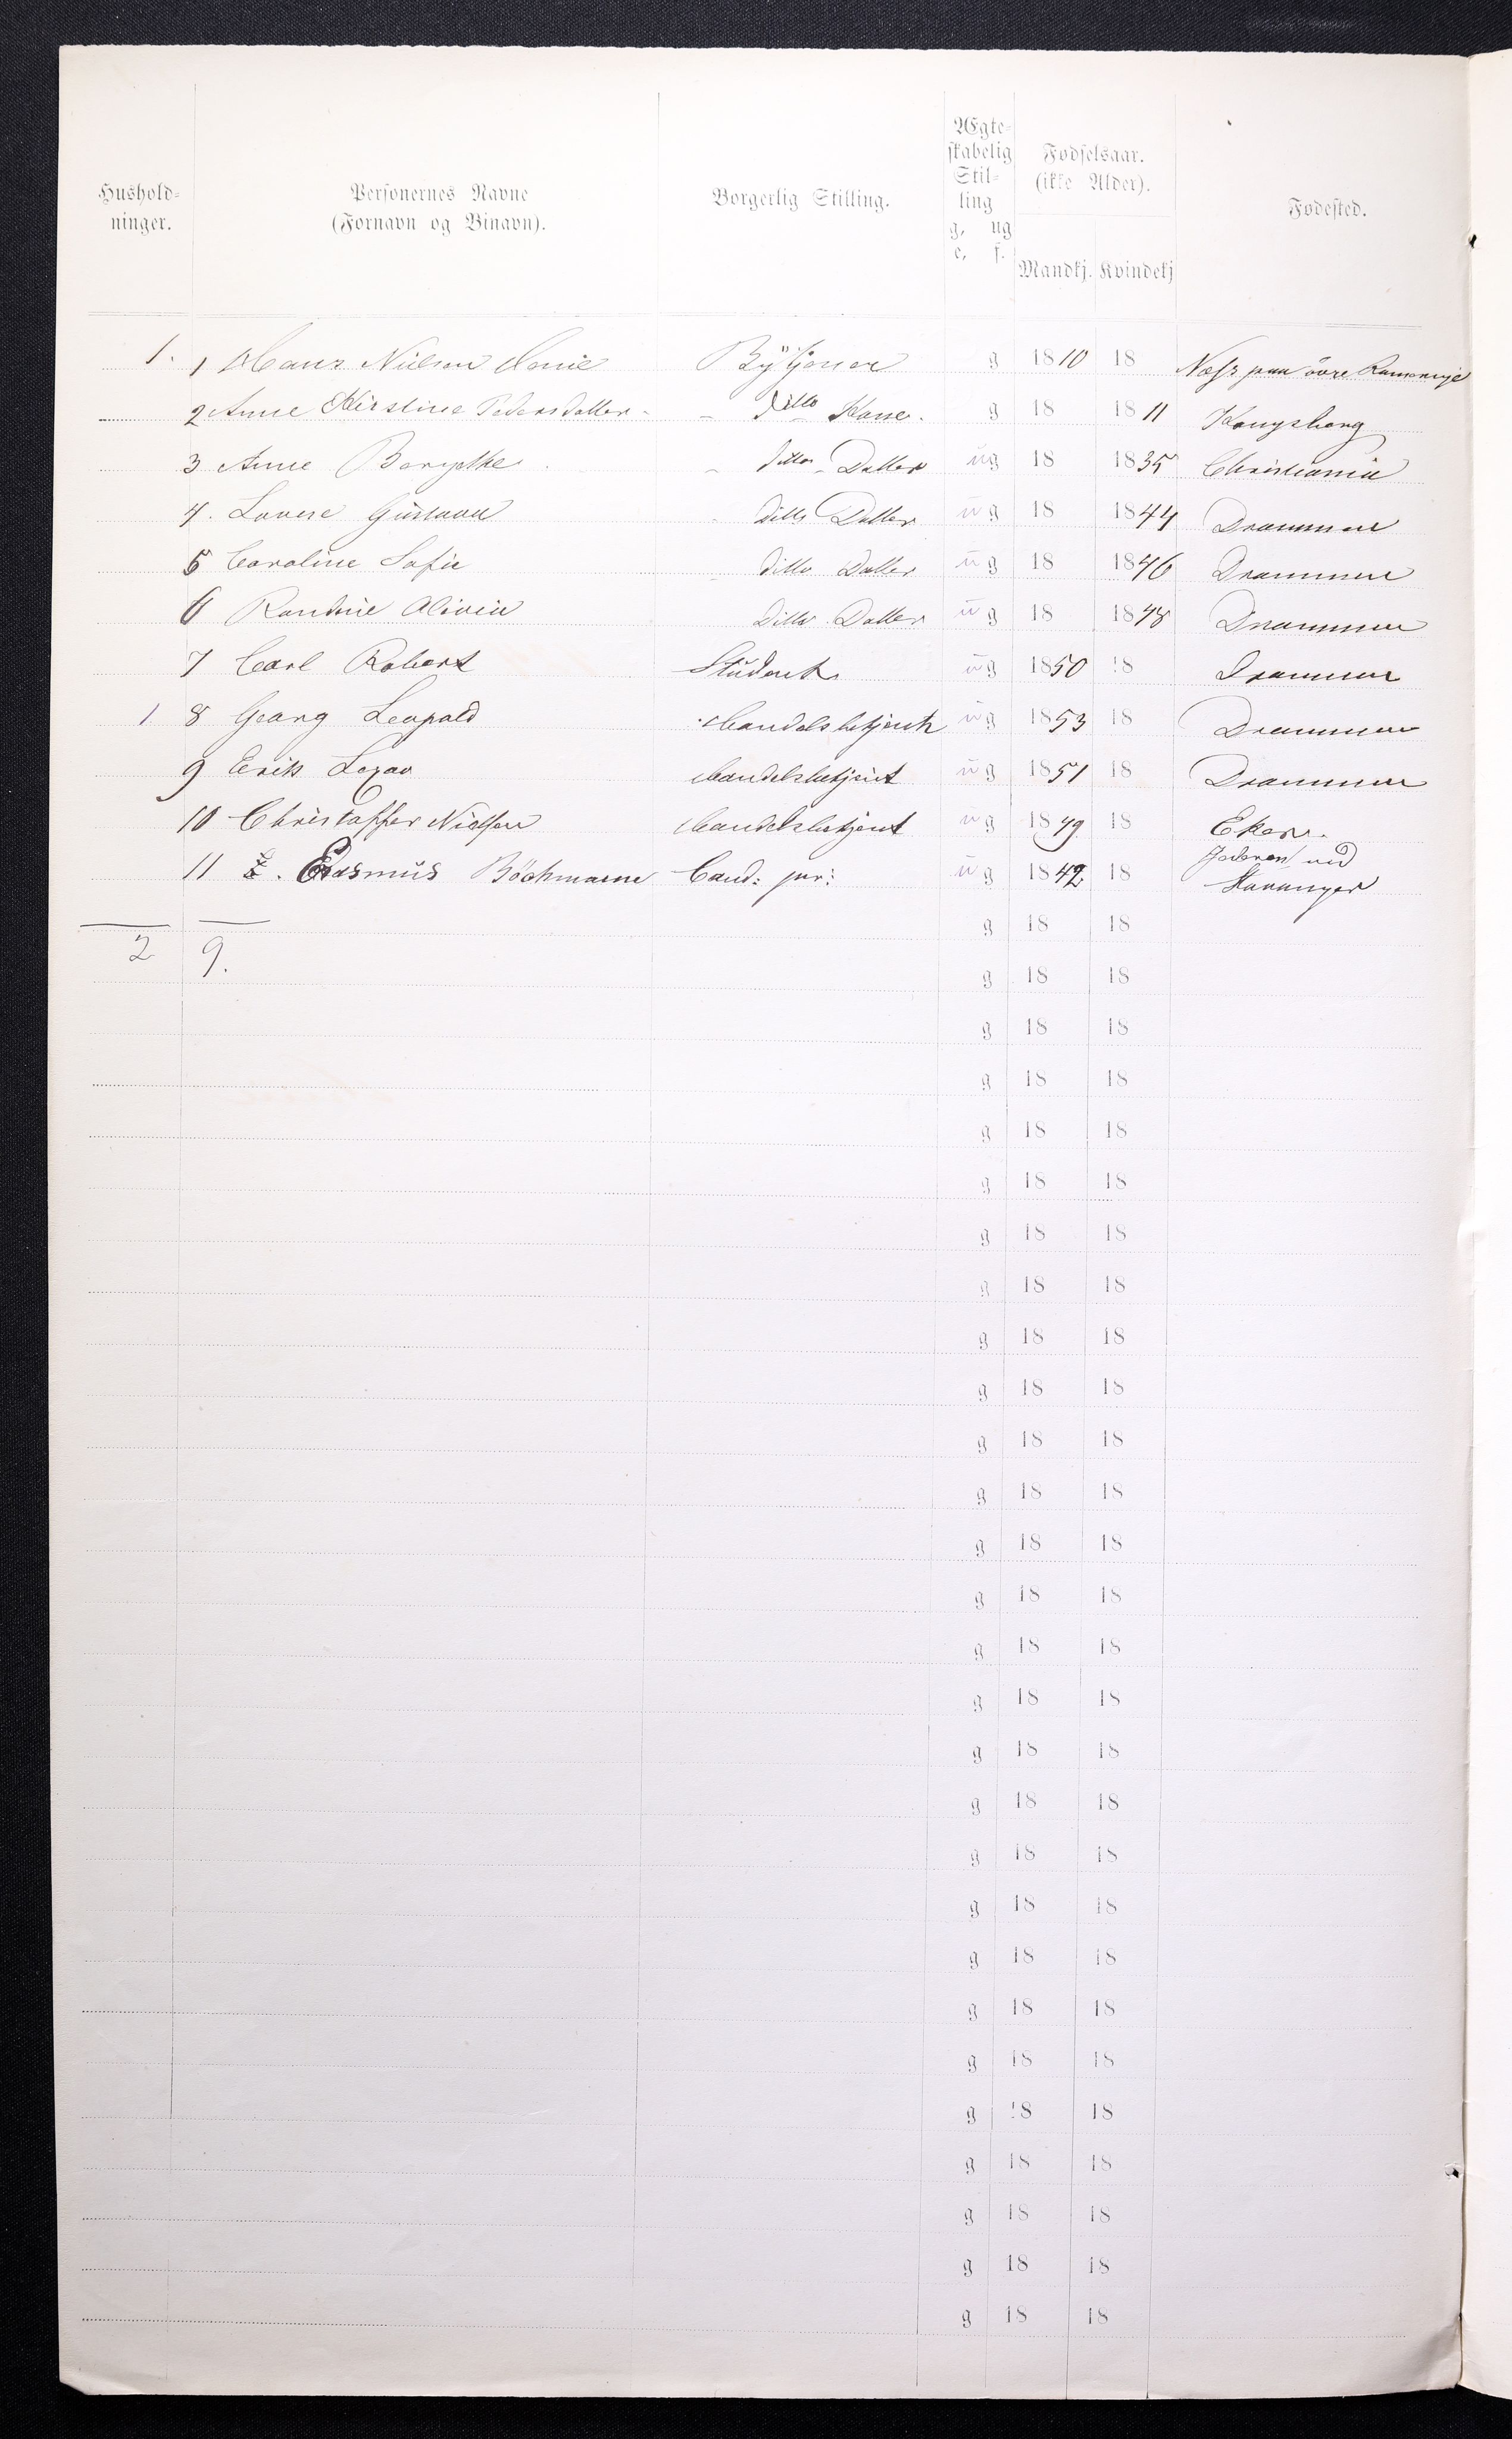 Hushold-
ninger.
Personernes Navne
(Fornavn og Binavn).
Borgerlig Stilling.
Ægte-
skabelig
Stil-
ling
g, ug
e, f.
Fødselsaar.
(ikke Alder).
Mandkj. Kvindekj
Fødested.
1. 1 Hans Nielsen Bytjener g 1810 18 Næss paa övre Romerige
2 Anne Kirstine Pedersdatter ditto Kone. g 18 1811 Kongsberg
3 Anne ditto Datter ug 18 1835 Christiania
4. Lovise Gustava ditto Datter ug 18 1844 Drammen
5 Caroline Sofie ditto Datter ug 18 1846 Drammen
6 Randine Olivia ditto Datter ug 18 1848 Drammen
7 Carl Robert Student ug 1850 18 Drammen
1 8 Georg Leopold Handelsbetjent ug 1853 18 Drammen
9 Erik Handelsbetjent ug 1851 18 Drammen
10 Christoffer Nielsen Handelsbetjent ug 1849 18 Eker.
11 Z. Erasmus Böckmann Cand: jur: ug 1842 18 Jederen ved
Stavanger
2 9.
g 18 18
g 18 18
g 18 18
g 18 18
g 18 18
g 18 18
g 18 18
g 18 18
g 18 18
g 18 18
g 18 18
g 18 18
g 18 18
g 18 18
g 18 18
g 18 18
g 18 18
g 18 18
g 18 18
g 18 18
g 18 18
g 18 18
g 18 18
g 18 18
g 18 18
g 18 18
g 18 18
g 18 18